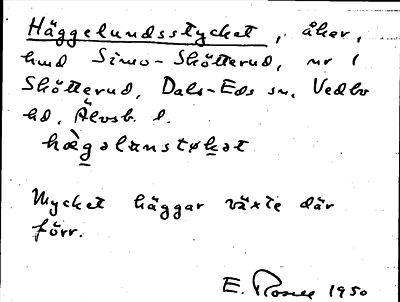 Häggelundsstycket, åker,
hmd Simo-Skötterud, nr 1
Skötterud, Dals-Eds sn, Vedbo
hd, Älvsb. l.
hæ̀gəlunstykət
Mycket häggar växte där
förr.
E. Rosell 1950